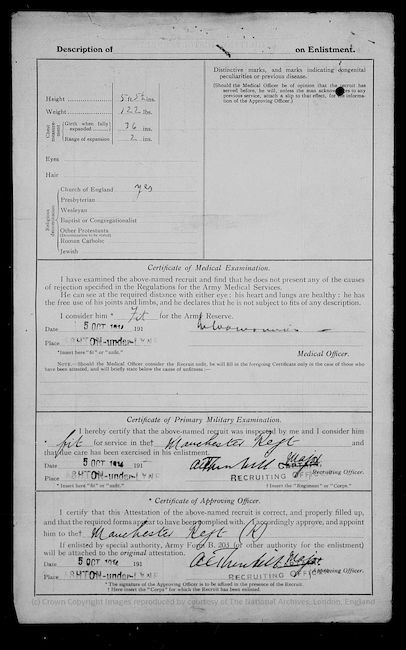 Description of on Enlistment.
Height 5 ft. 5½ ins.
Weight 122 lbs.
Chest measurement
Girth when fully expanded 36 ins.
Range of expansion 2 ins.
Eyes
Hair
Religious denomination
Church of England yes
Presbyterian
Wesleyan
Baptist or Congregationalist
Other Protestants
(Denomination to be stated)
Roman Catholic
Jewish
Distinctive marks, and marks indicating congenital
peculiarities or previous disease.
(Should the Medical Officer be of opinion that the recruit has
served before, he will, unless the man acknowledges to any
previous service, attach a slip to that effect, for the informa-
tion of the Approving Officer.)
Certificate of Medical Examination.
I have examined the above-named recruit and find that he does not present any of the causes
of rejection specified in the Regulations for the Army Medical Services.
He can see at the required distance with either eye; his heart and lungs are healthy; he has
the free use of his joints and limbs, and he declares that he is not subject to fits of any description.
I consider him * Fit for the Army Reserve.
Date 5 OCT 1914 191
Place ASHTON-under-LYNE
Medical Officer.
*Insert here "fit" or "unfit."
NOTE.—Should the Medical Officer consider the Recruit unfit, he will fill in the foregoing Certificate only in the case of those who
have been attested, and will briefly state below the cause of unfitness:—
Certificate of Primary Military Examination.
I hereby certify that the above-named recruit was inspected by me and I consider him
* fit for service in the† Manchester Regt and
that due care has been exercised in his enlistment.
Date 5 OCT 1914 191
Major
Recruiting Officer.
Place ASHTON-under-LYNE
RECRUITING OFFICER
* Insert here "fit" or "unfit."
† Insert the "Regiment" or "Corps."
* Certificate of Approving Officer.
I certify that this Attestation of the above-named recruit is correct, and properly filled up,
and that the required forms appear to have been complied with. I accordingly approve, and appoint
him to the† Manchester Regt (R)
If enlisted by special authority, Army Form B. 203 (or other authority for the enlistment)
will be attached to the original attestation.
Date 5 OCT 1914 191
Major
Approving Officer.
Place ASHTON-under-LYNE
RECRUITING OFFICER
*The signature of the Approving Officer is to be affixed in the presence of the Recruit.
† Here insert the "Corps" for which the Recruit has been enlisted.
(c) Crown Copyright Images reproduced by courtesy of The National Archives, London, England